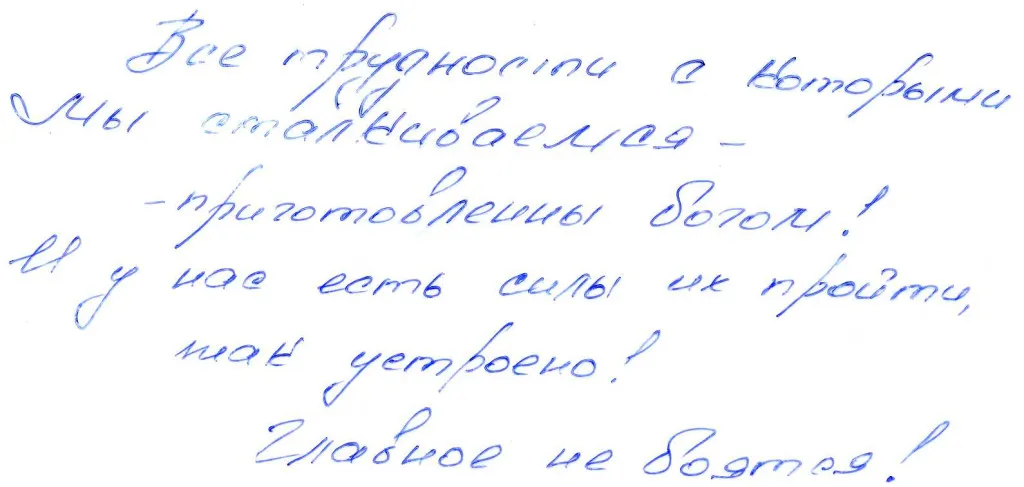 Все трудности с которыми
мы сталкиваемся –
– приготовленны богом!
И у нас есть силы их пройти,
так устроено!
Главное не боятся!